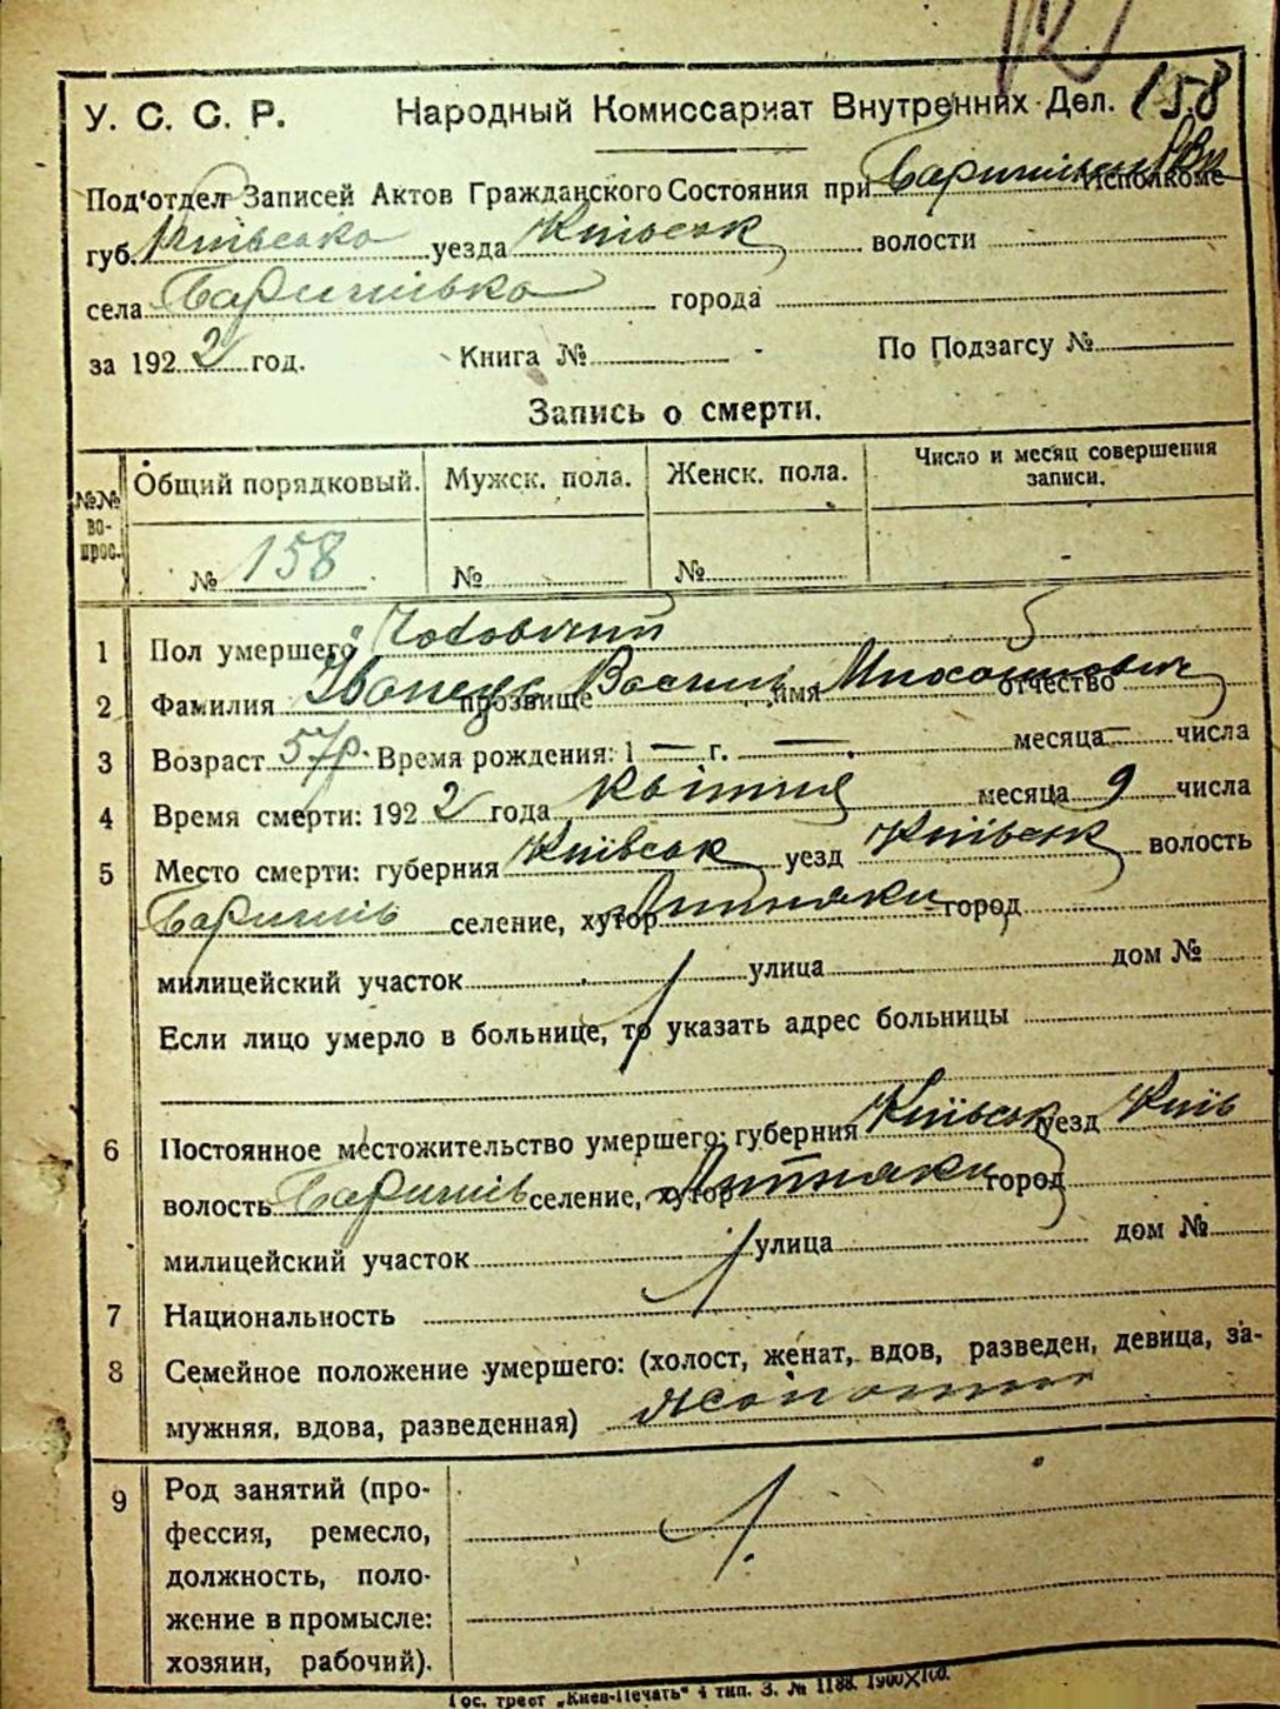 158
У. С. С. Р. Народный Комиссариат Внутренних Дел.
Под'отдел Записей Актов Гражданского Состояния при Исполкоме
губ. Київсько уезда Київськ волости
села Баришівка города
за 1922 год. Книга № По Подзагсу №
Запись о смерти.
№№ во-прос. Общий порядковый. Мужск. пола. Женск. пола. Число и месяц совершения записи.
№ 158 № №
1 Пол умершего Чоловічий
2 Фамилия прозвище Василь имя Михайлович отчество
3 Возраст 57 р. Время рождения: 1 — г. — месяца — числа
4 Время смерти: 1922 года квітня месяца 9 числа
5 Место смерти: губерния Київськ уезд Київськ волость
Баришів селение, хутор город
милицейский участок улица дом №
Если лицо умерло в больнице, то указать адрес больницы
6 Постоянное местожительство умершего: губерния Київськ уезд Київ
волость Баришів селение, хутор город
милицейский участок улица дом №
7 Национальность
8 Семейное положение умершего: (холост, женат, вдов, разведен, девица, за-
мужняя, вдова, разведенная)
9 Род занятий (про-
фессия, ремесло,
должность, поло-
жение в промысле:
хозяин, рабочий).
Гос. трест „Киев-Печать“ 4 тип. З. № 1188.